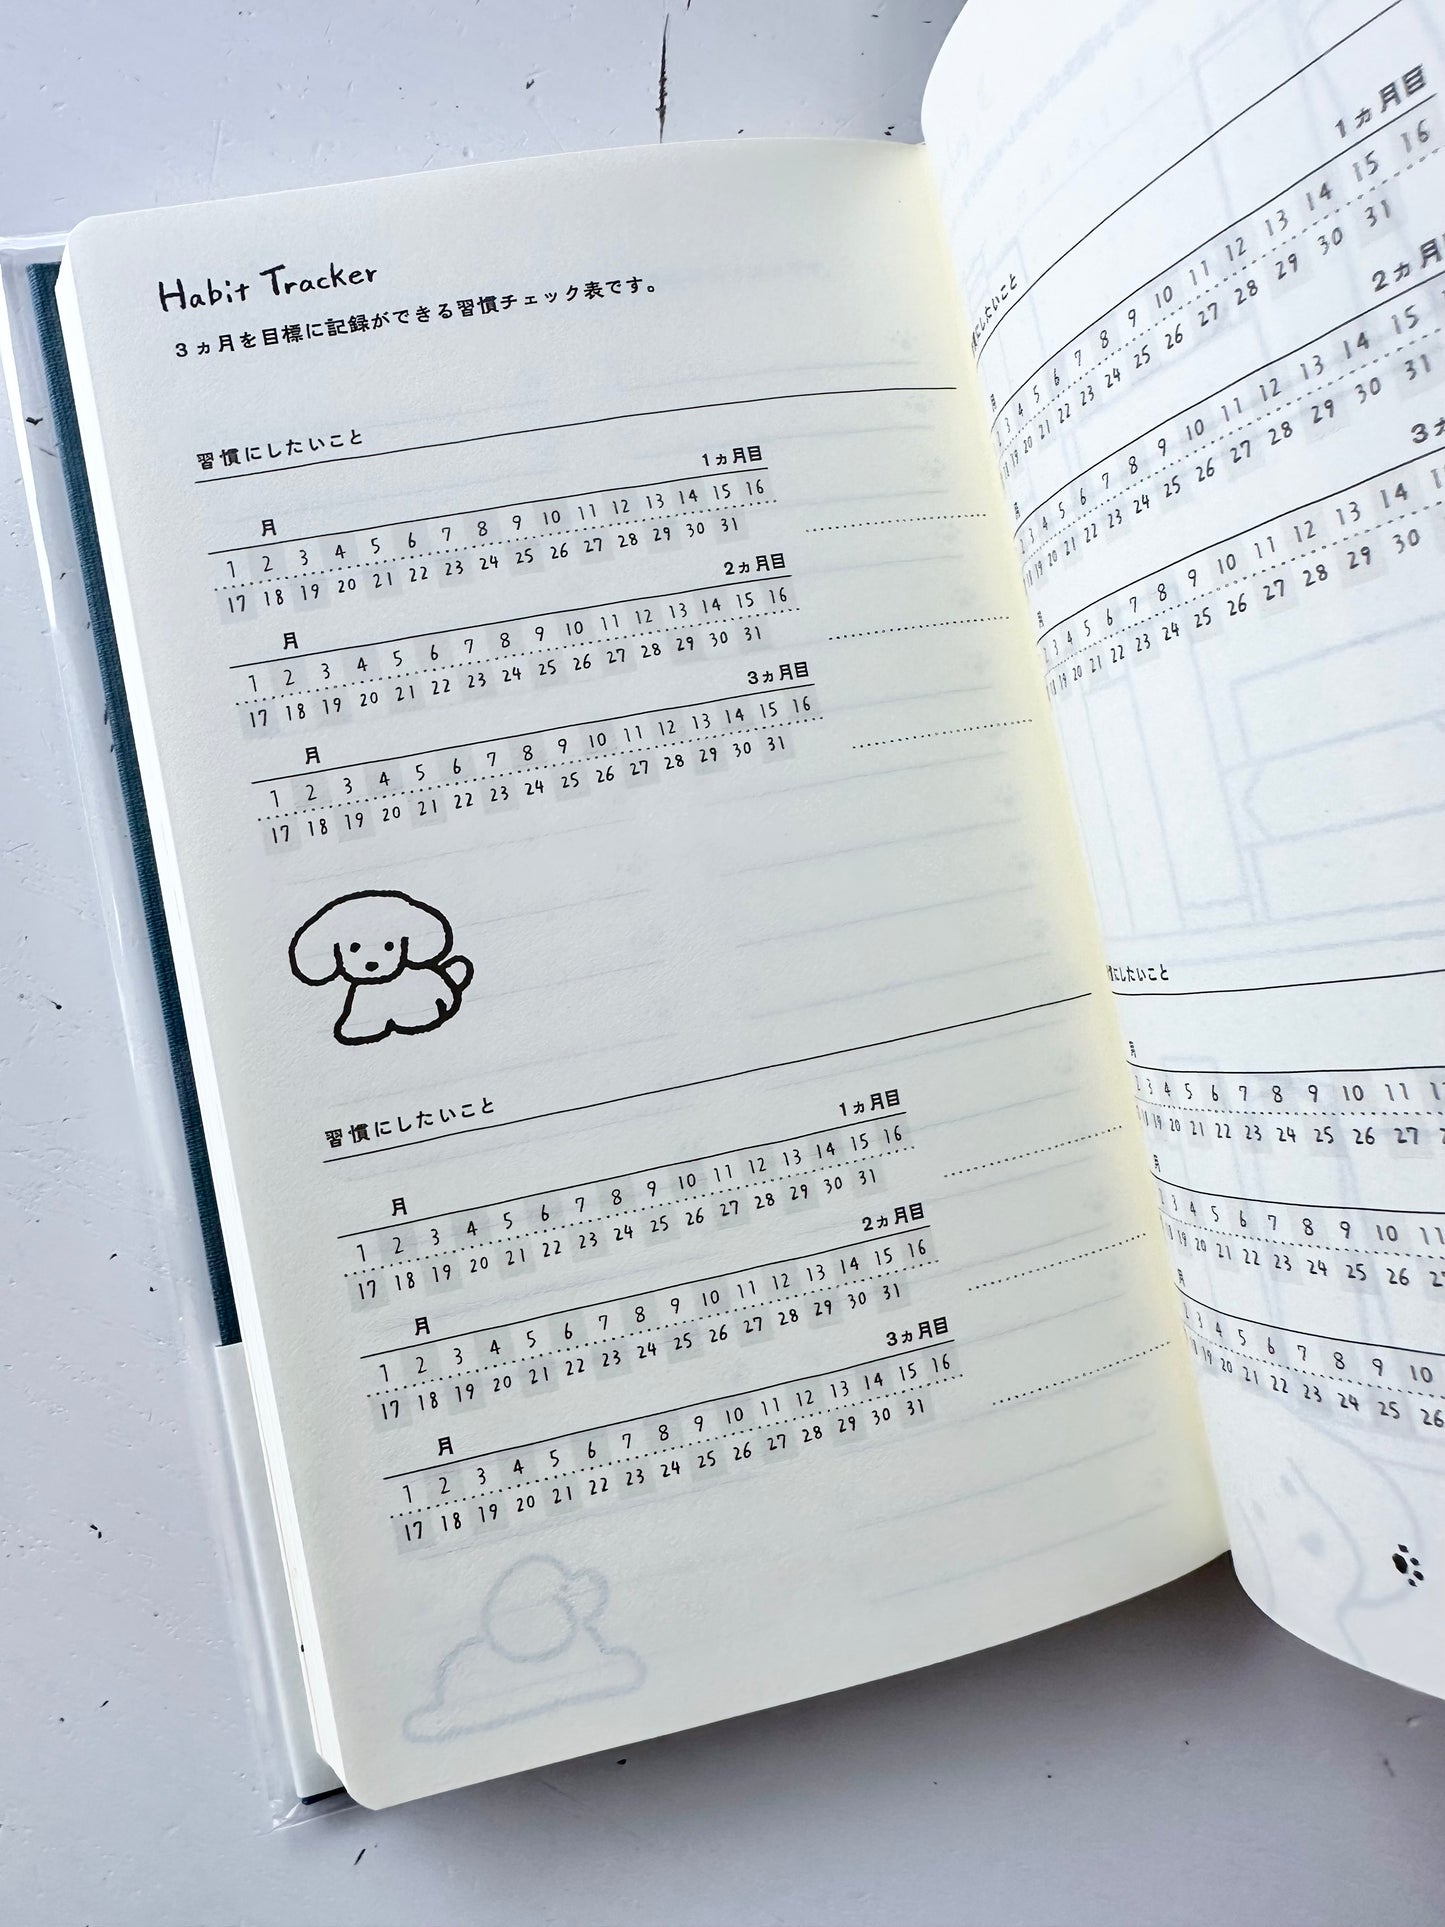 Habit Tracker
3ヵ月を目標に記録ができる習慣チェック表です。
習慣にしたいこと
1ヵ月目
月
1 2 3 4 5 6 7 8 9 10 11 12 13 14 15 16
17 18 19 20 21 22 23 24 25 26 27 28 29 30 31
2ヵ月目
月
1 2 3 4 5 6 7 8 9 10 11 12 13 14 15 16
17 18 19 20 21 22 23 24 25 26 27 28 29 30 31
3ヵ月目
月
1 2 3 4 5 6 7 8 9 10 11 12 13 14 15 16
17 18 19 20 21 22 23 24 25 26 27 28 29 30 31
習慣にしたいこと
1ヵ月目
月
1 2 3 4 5 6 7 8 9 10 11 12 13 14 15 16
17 18 19 20 21 22 23 24 25 26 27 28 29 30 31
2ヵ月目
月
1 2 3 4 5 6 7 8 9 10 11 12 13 14 15 16
17 18 19 20 21 22 23 24 25 26 27 28 29 30 31
3ヵ月目
月
1 2 3 4 5 6 7 8 9 10 11 12 13 14 15 16
17 18 19 20 21 22 23 24 25 26 27 28 29 30 31
にしたいこと
1ヵ月目
月
3 4 5 6 7 8 9 10 11 12 13 14 15 16
18 19 20 21 22 23 24 25 26 27 28 29 30 31
2ヵ月
月
2 3 4 5 6 7 8 9 10 11 12 13 14 15
18 19 20 21 22 23 24 25 26 27 28 29 30 31
3ヵ
月
3 4 5 6 7 8 9 10 11 12 13 14
18 19 20 21 22 23 24 25 26 27 28 29 30
にしたいこと
月
2 3 4 5 6 7 8 9 10 11
18 19 20 21 22 23 24 25 26 27
月
3 4 5 6 7 8 9 10 11
18 19 20 21 22 23 24 25 26
月
2 3 4 5 6 7 8 9 10
18 19 20 21 22 23 24 25 26